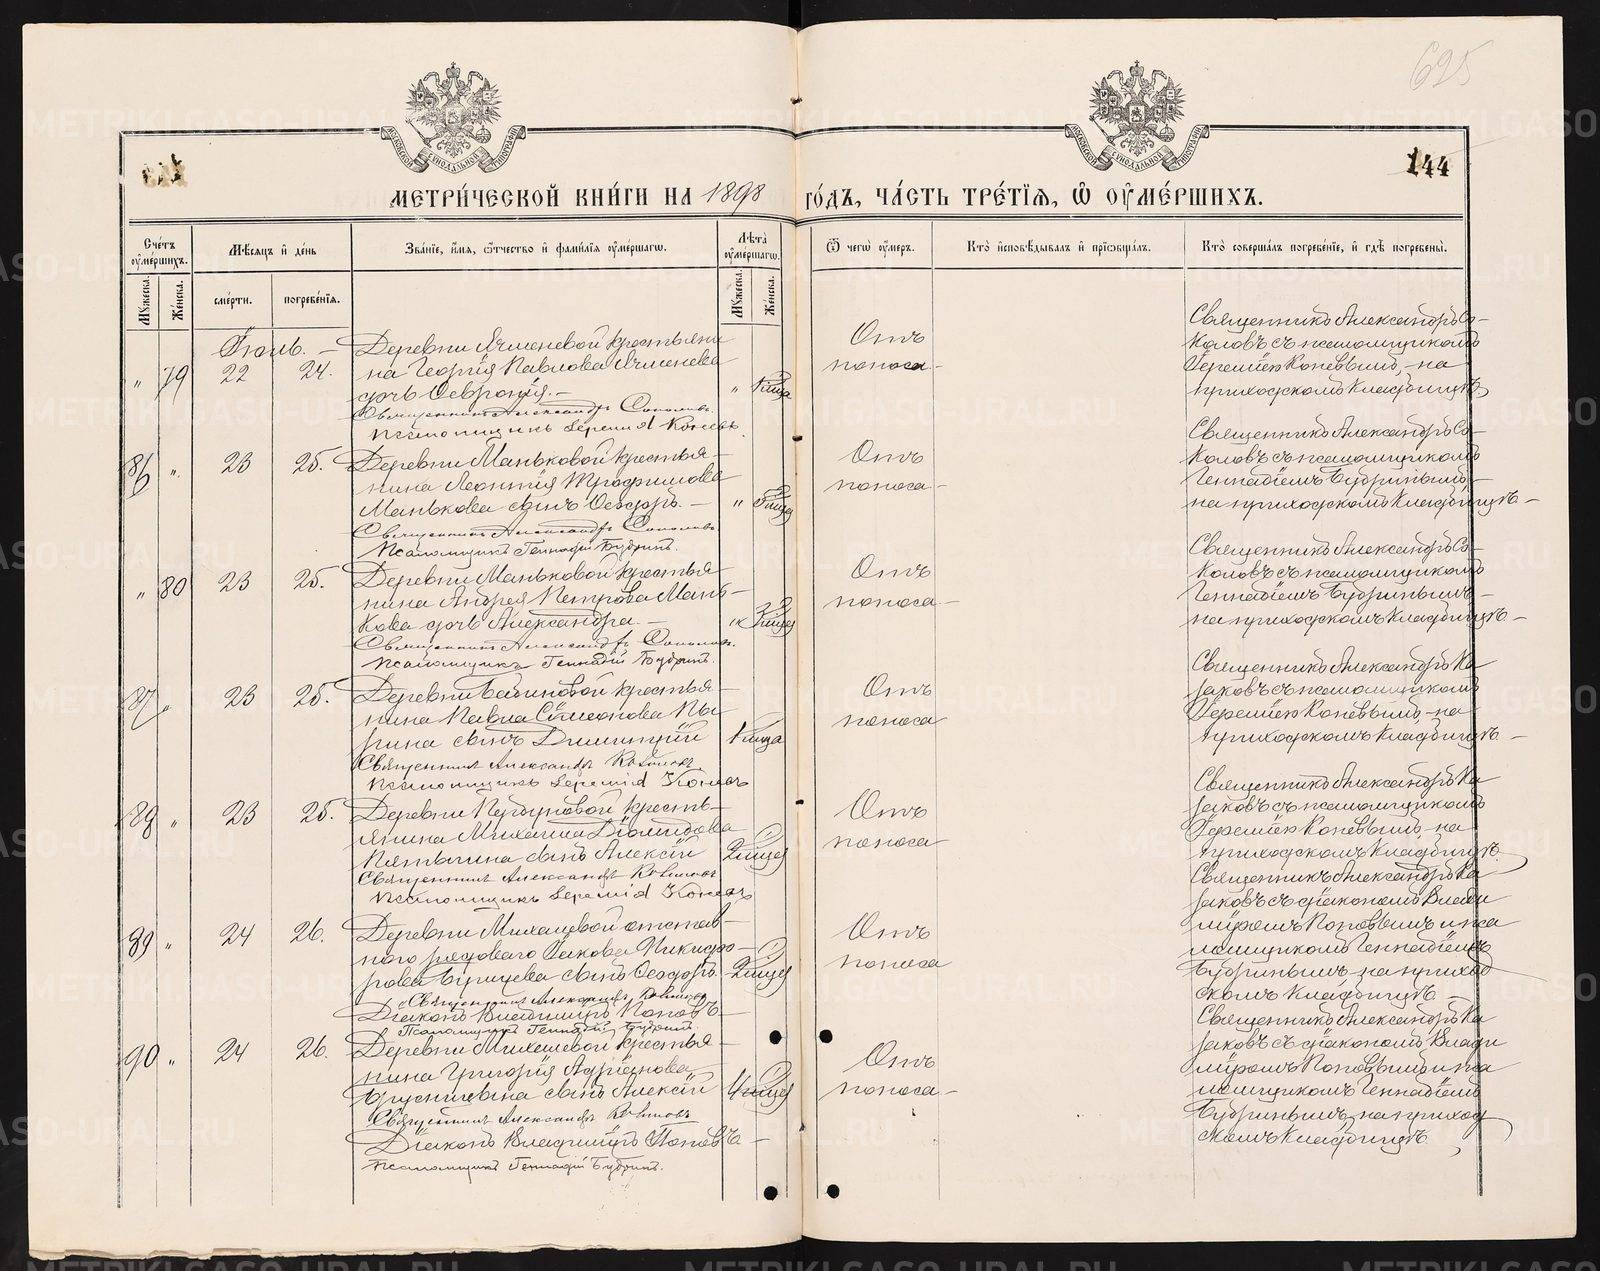 625
144
МЕТРИ́ЧЕСКОЙ КНИ́ГИ НА 1898 ГО́ДЪ, ЧА́СТЬ ТРЕ́ТЇѦ, Ѡ ОУ҆МЕ́РШИХЪ.
Сче́тъ оу҆ме́ршихъ.
Мѣ́сѧцъ и҆ де́нь
Зва́нїе, и҆́мѧ, ѻ҆́тчество и҆ фамї́лїѧ оу҆ме́ршагѡ.
Лѣ́та оу҆ме́ршагѡ.
Ѿ чегѡ̀ оу҆́меръ.
Кто̀ и҆сповѣ́дывалъ и҆ прїѡбща́лъ.
Кто̀ соверша́лъ погребе́нїе, и҆ гдѣ̀ погребены̀.
Мꙋ́жеска.
Же́нска.
сме́рти.
погребе́нїѧ.
Мꙋ́жеска.
Же́нска.
Іюль.
" 79 22 24.
Деревни Ячменевой крестьяни
на Георгія Павлова Ячменева
дочь Февронія.
Священникъ Александръ Соколовъ.
Псаломщикъ Іеремія Коневъ.
Отъ
поноса
Священникъ Александръ Со-
коловъ съ псаломщикомъ
Іереміею Коневымъ, на
приходскомъ кладбищѣ
86 " 23 25.
Деревни Маньковой крестья-
нина Леонтія Трофимова
Манькова сынъ Ѳеодоръ.
Священникъ Александръ Соколовъ
Псаломщикъ Геннадій Будринъ.
Отъ
поноса
Священникъ Александръ Со-
коловъ съ псаломщикомъ
Геннадіемъ Будринымъ,
на приходскомъ кладбищѣ
" 80 23 25.
Деревни Маньковой крестья
нина Андрея Петрова Мань-
кова дочь Александра.
Священникъ Александръ Соколовъ.
Псаломщикъ Геннадій Будринъ.
Отъ
поноса
Священникъ Александръ Со-
коловъ съ псаломщикомъ
Геннадіемъ Будринымъ
на приходскомъ кладбищѣ
87 " 23 25.
крестья-
нина Павла Сѵмеонова Пы
рина сынъ Димитрій
1 мѣсяца
Священникъ Александръ
Псаломщикъ Іеремія Коневъ
Отъ
поноса
Священникъ Александръ Ка
заковъ съ псаломщикомъ
Іереміею Коневымъ на
приходскомъ кладбищѣ
23 25.
кресть-
янина Михаила Діомидова
сынъ Алексій
Священникъ Александръ
Псаломщикъ Іеремія Коневъ
Отъ
поноса
Священникъ Александръ Ка
заковъ съ псаломщикомъ
Іереміею Коневымъ на
приходскомъ кладбищѣ
89 " 24 26.
Деревни Михалевой отстав-
ного рядоваго Іакова Никифо-
рова сынъ Ѳеодоръ
Священникъ Александръ
Діаконъ Владиміръ Поповъ
Псаломщикъ Геннадій Будринъ
Отъ
поноса
Священникъ Александръ Ка
заковъ съ діакономъ Влади
міромъ Поповымъ и пса
ломщикомъ Геннадіемъ
Будринымъ на приход
скомъ кладбищѣ
90 " 24 26.
Деревни Михалевой крестья-
нина Григорія Адріанова
Брусницына сынъ Алексій
Священникъ Александръ
Діаконъ Владиміръ Поповъ
Псаломщикъ Геннадій Будринъ.
Отъ
поноса
Священникъ Александръ Ка
заковъ съ діакономъ Влади
міромъ Поповымъ и пса
ломщикомъ Геннадіемъ
Будринымъ на приход
скомъ кладбищѣ
METRIKI.GASO-URAL.RU